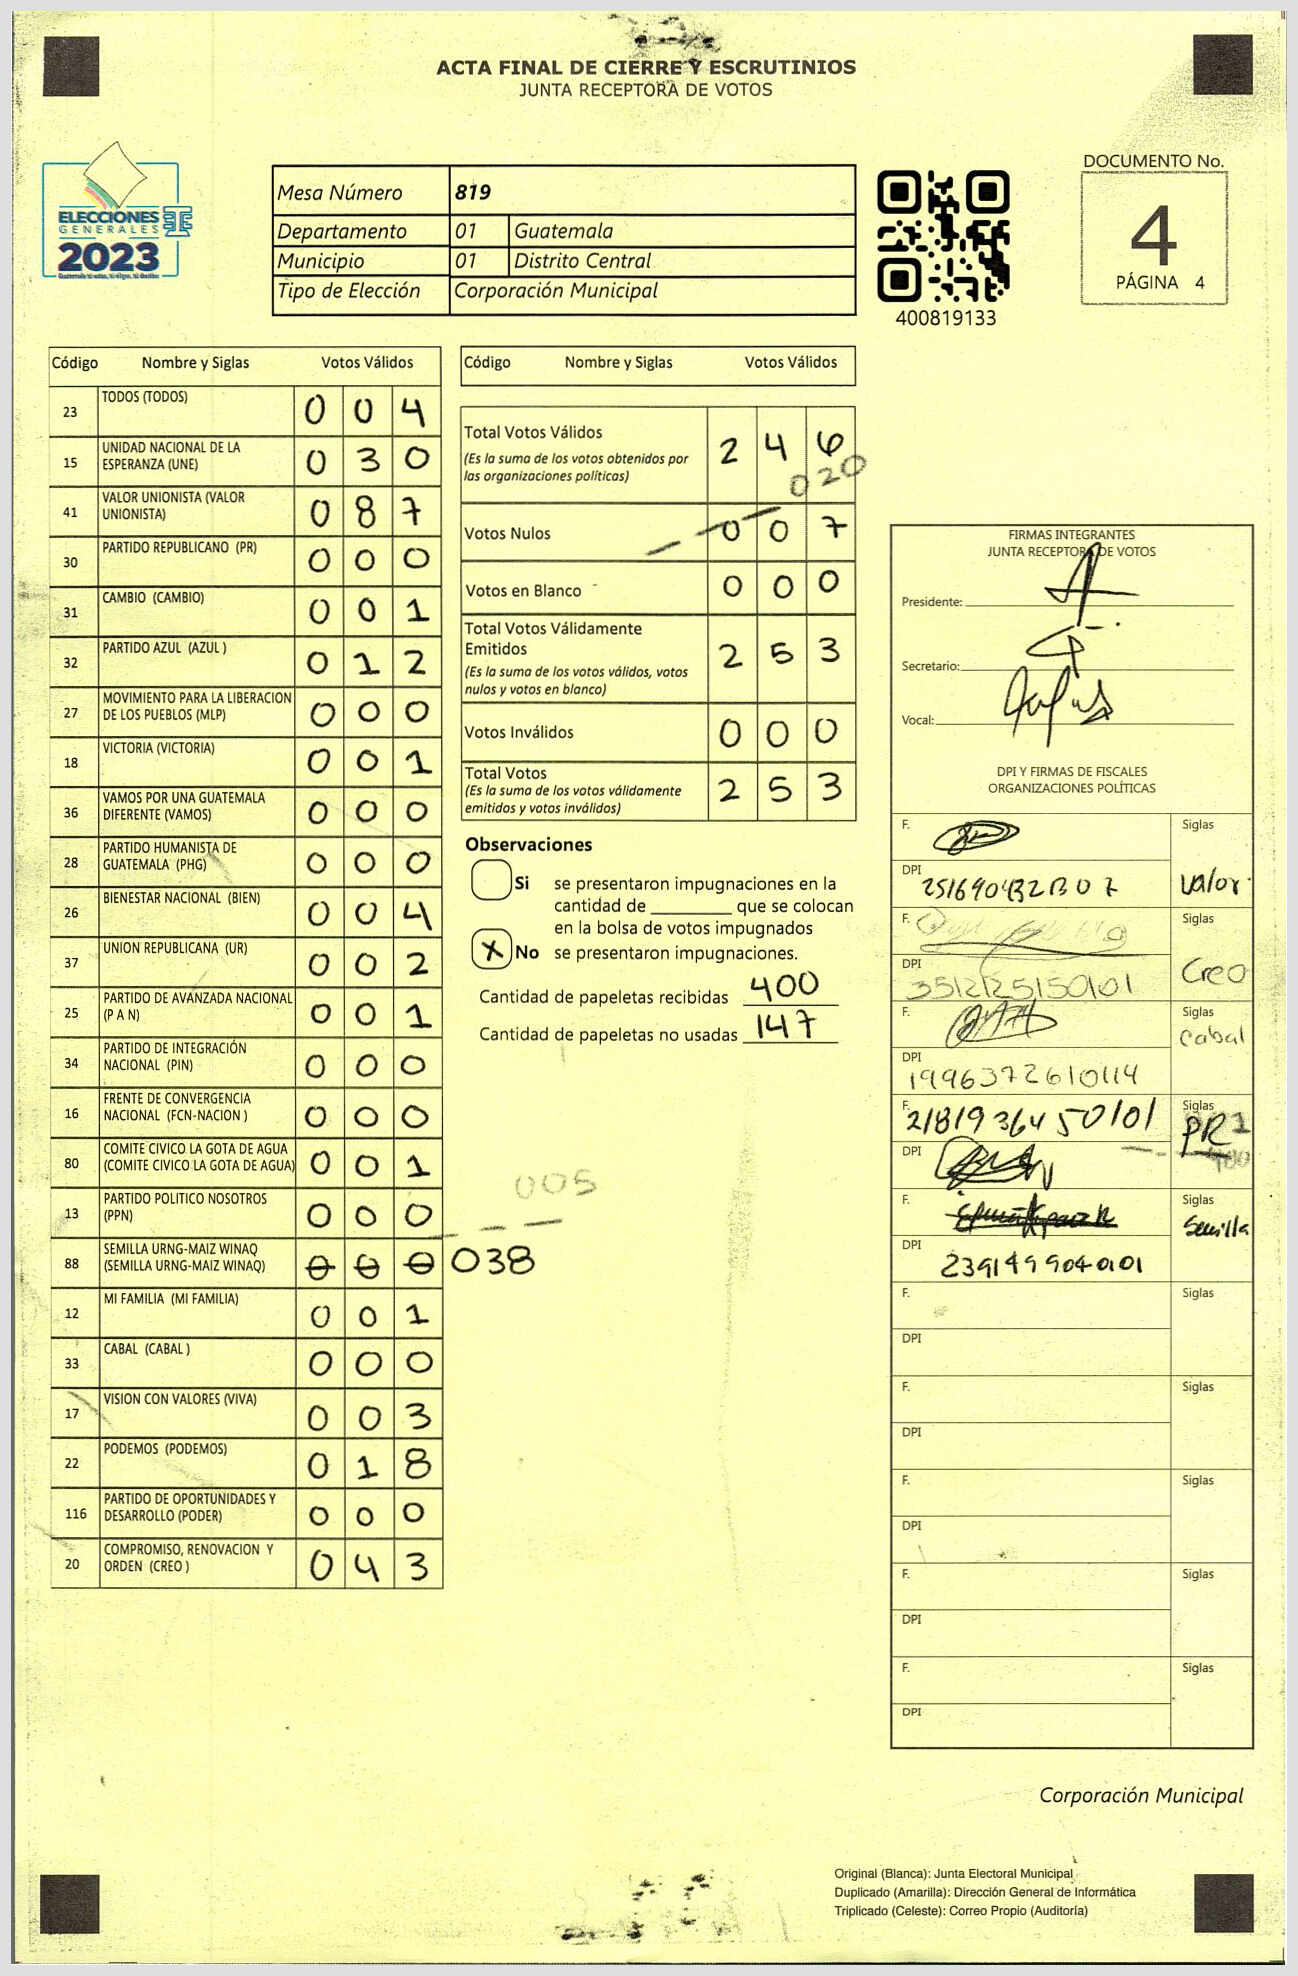 ACTA FINAL DE CIERRE Y ESCRUTINIOS
JUNTA RECEPTORA DE VOTOS
ELECCIONES
GENERALES
2023
Mesa Número 819
Departamento 01 Guatemala
Municipio 01 Distrito Central
Tipo de Elección Corporación Municipal
400819133
DOCUMENTO No.
4
PÁGINA 4
Código Nombre y Siglas Votos Válidos
23 TODOS (TODOS) 0 0 4
15 UNIDAD NACIONAL DE LA
ESPERANZA (UNE) 0 3 0
41 VALOR UNIONISTA (VALOR
UNIONISTA) 0 8 7
30 PARTIDO REPUBLICANO (PR) 0 0 0
31 CAMBIO (CAMBIO) 0 0 1
32 PARTIDO AZUL (AZUL ) 0 1 2
27 MOVIMIENTO PARA LA LIBERACION
DE LOS PUEBLOS (MLP) 0 0 0
18 VICTORIA (VICTORIA) 0 0 1
36 VAMOS POR UNA GUATEMALA
DIFERENTE (VAMOS) 0 0 0
28 PARTIDO HUMANISTA DE
GUATEMALA (PHG) 0 0 0
26 BIENESTAR NACIONAL (BIEN) 0 0 4
37 UNION REPUBLICANA (UR) 0 0 2
25 PARTIDO DE AVANZADA NACIONAL
(P A N) 0 0 1
34 PARTIDO DE INTEGRACIÓN
NACIONAL (PIN) 0 0 0
16 FRENTE DE CONVERGENCIA
NACIONAL (FCN-NACION ) 0 0 0
80 COMITE CIVICO LA GOTA DE AGUA
(COMITE CIVICO LA GOTA DE AGUA) 0 0 1
005
13 PARTIDO POLITICO NOSOTROS
(PPN) 0 0 0
88 SEMILLA URNG-MAIZ WINAQ
(SEMILLA URNG-MAIZ WINAQ) 0 0 0 038
12 MI FAMILIA (MI FAMILIA) 0 0 1
33 CABAL (CABAL ) 0 0 0
17 VISION CON VALORES (VIVA) 0 0 3
22 PODEMOS (PODEMOS) 0 1 8
116 PARTIDO DE OPORTUNIDADES Y
DESARROLLO (PODER) 0 0 0
20 COMPROMISO, RENOVACION Y
ORDEN (CREO ) 0 4 3
Código Nombre y Siglas Votos Válidos
Total Votos Válidos 2 4 6
(Es la suma de los votos obtenidos por
las organizaciones políticas) 020
Votos Nulos 0 0 7
Votos en Blanco 0 0 0
Total Votos Válidamente
Emitidos 2 5 3
(Es la suma de los votos válidos, votos
nulos y votos en blanco)
Votos Inválidos 0 0 0
Total Votos 2 5 3
(Es la suma de los votos válidamente
emitidos y votos inválidos)
Observaciones
Si se presentaron impugnaciones en la
cantidad de ________ que se colocan
en la bolsa de votos impugnados
X No se presentaron impugnaciones.
Cantidad de papeletas recibidas 400
Cantidad de papeletas no usadas 147
FIRMAS INTEGRANTES
JUNTA RECEPTORA DE VOTOS
Presidente:
Secretario:
Vocal:
DPI Y FIRMAS DE FISCALES
ORGANIZACIONES POLÍTICAS
F. Siglas
DPI Valor
F. Siglas
DPI 3512125150101 Creo
F. Siglas
Cabal
DPI 1996372610114
F. 2181936450101 Siglas
PR
DPI
F. Siglas
Semilla
DPI 2391499040101
F. Siglas
DPI
F. Siglas
DPI
F. Siglas
DPI
F. Siglas
DPI
F. Siglas
DPI
Corporación Municipal
Original (Blanca): Junta Electoral Municipal
Duplicado (Amarilla): Dirección General de Informática
Triplicado (Celeste): Correo Propio (Auditoría)